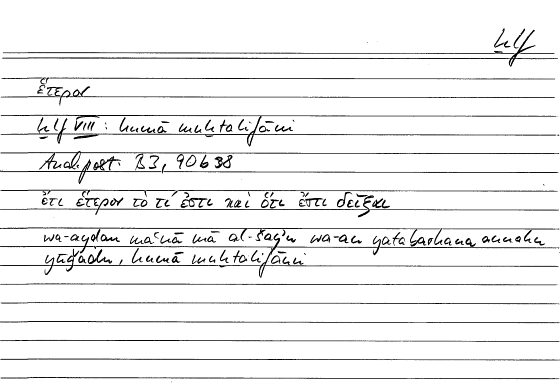 ḫlf
ἕτερον
ḫlf VIII : humā muḫtalifāni
Anal. post. B3, 90b38
ἔτι ἕτερον τὸ τί ἐστι καὶ ὅτι ἔστι δεῖξαι
wa-ayḍan maʿnā mā al-šayʾu wa-an yatabarhana annahu
yūǧadu, humā muḫtalifāni